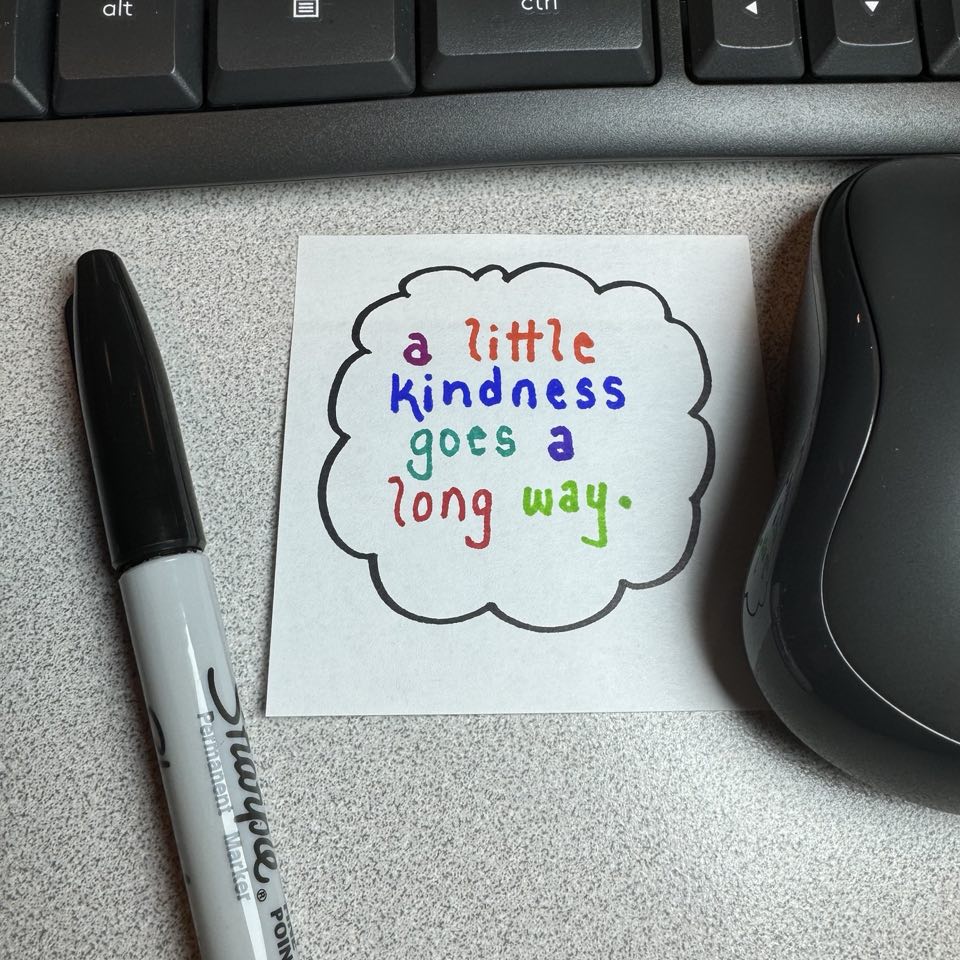 alt
ctrl
a little
kindness
goes a
long way.
Sharpie®
Permanent Marker